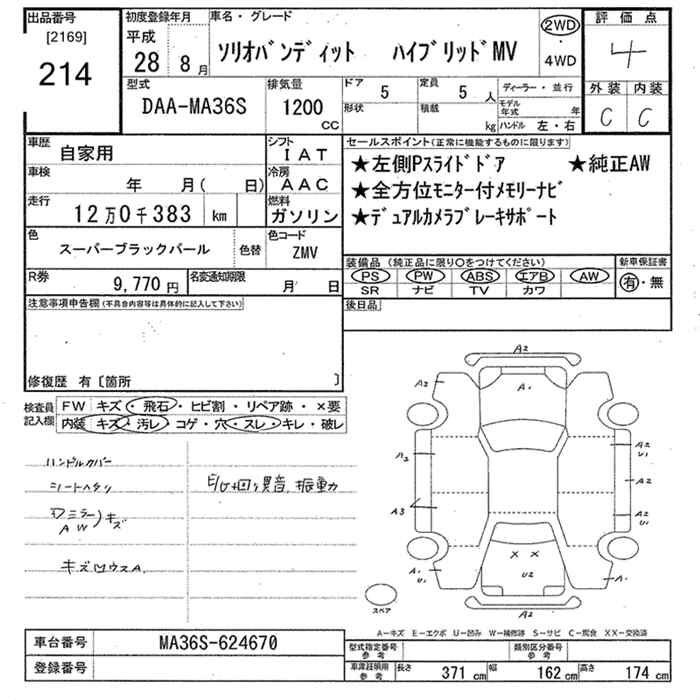 出品番号
[2169]
214
初度登録年月
平成
28年8月
車名・グレード
ソリオバンディット ハイブリッドMV
2WD
・
4WD
評価点
4
外装 内装
C C
型式
DAA-MA36S
排気量
1200
CC
ドア 5
形状
定員 5人
積載 kg
ディーラー・並行
モデル年式 年
ハンドル 左・右
車歴 自家用
シフト IAT
車検 年 月( 日)
冷房 AAC
走行 12万0千383 km
燃料 ガソリン
色 スーパーブラックパール
色替
色コード ZMV
R券 9,770円
名変通知期限 月 日
セールスポイント(正常に機能するものに限ります)
★左側Pスライドドア ★純正AW
★全方位モニター付メモリーナビ
★デュアルカメラブレーキサポート
装備品(純正品に限り○をつけてください)
PS PW ABS エアB AW
SR ナビ TV カワ
新車保証書
有・無
後日品
注意事項申告欄(不具合内容等は具体的に記入して下さい)
修復歴 有〔箇所 〕
検査員記入欄
FW キズ・飛石・ヒビ割・リペア跡・×要
内装 キズ・汚レ・コゲ・穴・スレ・キレ・破レ
ハンドルカバー
シートヘタリ
ドアミラー
AW
キズ
キズ凹ウスA.
E/G+回り異音、振動
A2
A2
A1
A2
A2
A2
U1
A2
A3
A2
U1
X X
U2
A1
U1
A1
A2
スペア
A-キズ E-エクボ U-凹み W-補修跡 S-サビ C-腐食 XX-交換済
車台番号 MA36S-624670
登録番号
型式指定番号 参考
類別区分番号 参考
車庫証明用 参考
長さ 371 cm 幅 162 cm 高さ 174 cm